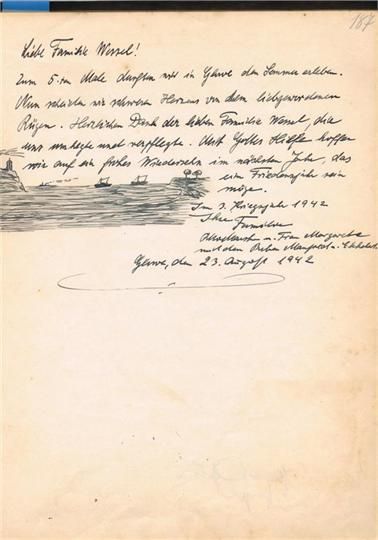 187
Liebe Familie Wessel!
Zum 5-ten Male durften wir in Glowe den Sommer erleben.
Nun scheiden wir schweren Herzens von dem liebgewordenen
Rügen. Herzlichen Dank der lieben Familie Wessel, die
uns umhegte und verpflegte. Mit Gottes Hilfe hoffen
wir auf ein frohes Wiedersehn im nächsten Jahr, das
ein Friedensjahr sein
möge.
Im 3. Kriegsjahr 1942
Ihre Familie
u. Frau Margarete
mit den Buben Manfred u. Ekkehart
Glowe, den 23. August 1942